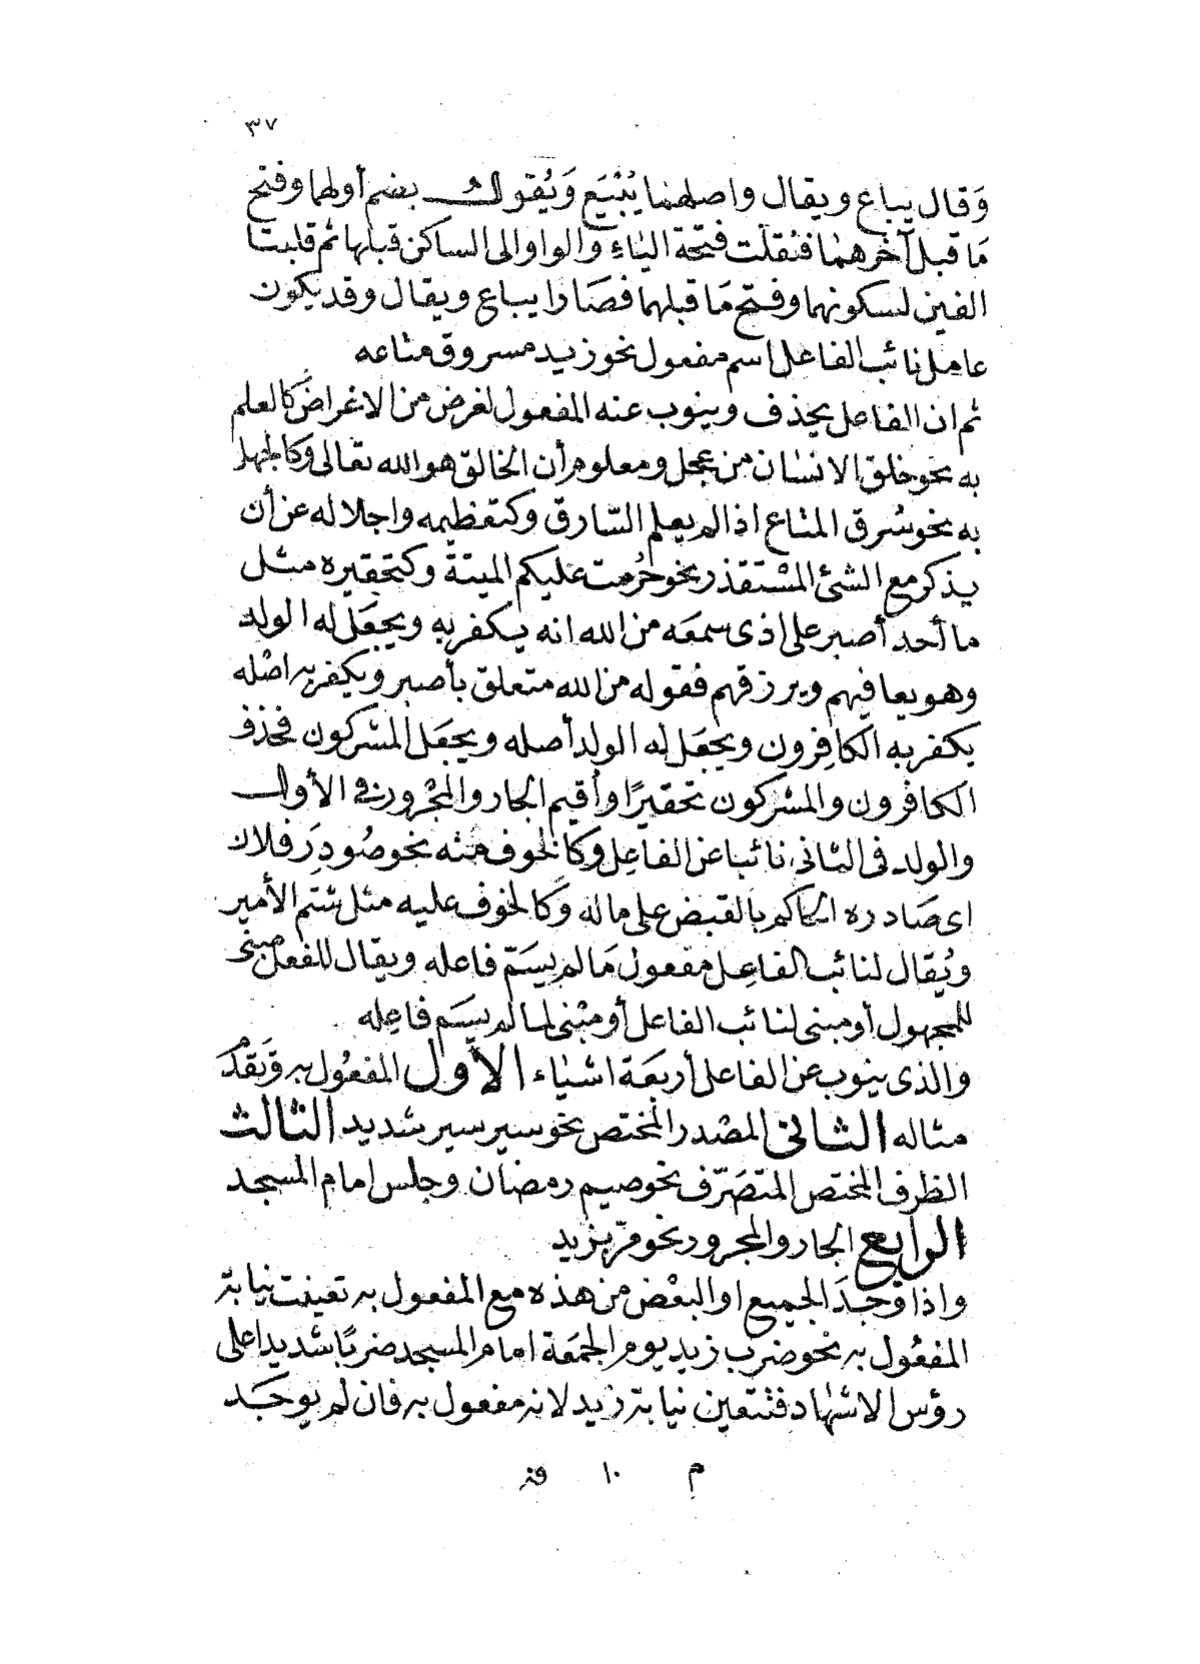 ٣٧
وَقال يباع ويقال واصلهما يُبْيَع وَيُقْوَل بضم أولهما وفتح
مَا قبل آخرهما فنقلت فتحة الياء والواو الى الساكن قبلها ثم قلبتا
الفين لسكونهما وفتح مَا قبلهما فصَارا يباع ويقال وقد يكون
عامل نائب الفاعل اسم مفعول نحو زيد مسروق متاعه
ثم ان الفاعل يحذف وينوب عنه المفعول لغرض من الاغراض كالعلم
به نحو خلق الانسان من عجل ومعلوم أن الخالق هو الله تعالى وكالجهل
به نحو سُرق المتاع اذا لم يعلم السّارق وكتعظيمه واجلاله عن أن
يذكر مع الشئ المسْتقذر نحو حُرمت عليكم الميتة وكتحقيره مثل
ما أحد أصبر على اذى سمعَه من الله انه يكفر به ويجعَل له الولد
وهو يعافيهم ويرزقهم فقوله من الله متعلق بأصبر ويكفر به اصْله
يكفر به الكافِرون ويجعَل له الولد أصله ويجعَل المشركون فحذف
الكافرون والمشركون تحقيرًا وأقيم الجار والمجْرور فى الأول
والولد فى الثانى نائبا عن الفاعِل وكالخوف منه نحو صُودِرَ فلان
اى صَادره الحاكم بالقبض على ماله وَكالخوف عليه مثل شتم الأمير
ويُقال لنائب الفاعِل مفعول مَا لم يسَمّ فاعله ويقال للفعل مبنى
للمجهول أو مبنى لنائب الفاعل أو مبْنى لما لم يسَم فاعِله
والذى ينوب عن الفاعل أربعَة اشياء الأول المفعُول به وَتقدم
مثاله الثانى المصْدر المختص نحو سير سير شديد الثالث
الظرف المختص المتصَرّف نحو صيم رمضان وجلس امام المسجد
الرابع الجار والمجرور نحو مرّ بزيد
واذا وُجدَ الجميع او البعْض من هذه مع المفعول به تعينت نيابة
المفعُول به نحو ضرب زيد يوم الجمَعة امام المسجد ضربًا شديدا على
رؤس الاشهاد فتتعين نيابة زيد لانه مفعول به فان لم يوجَد
م ١٠ فتـ